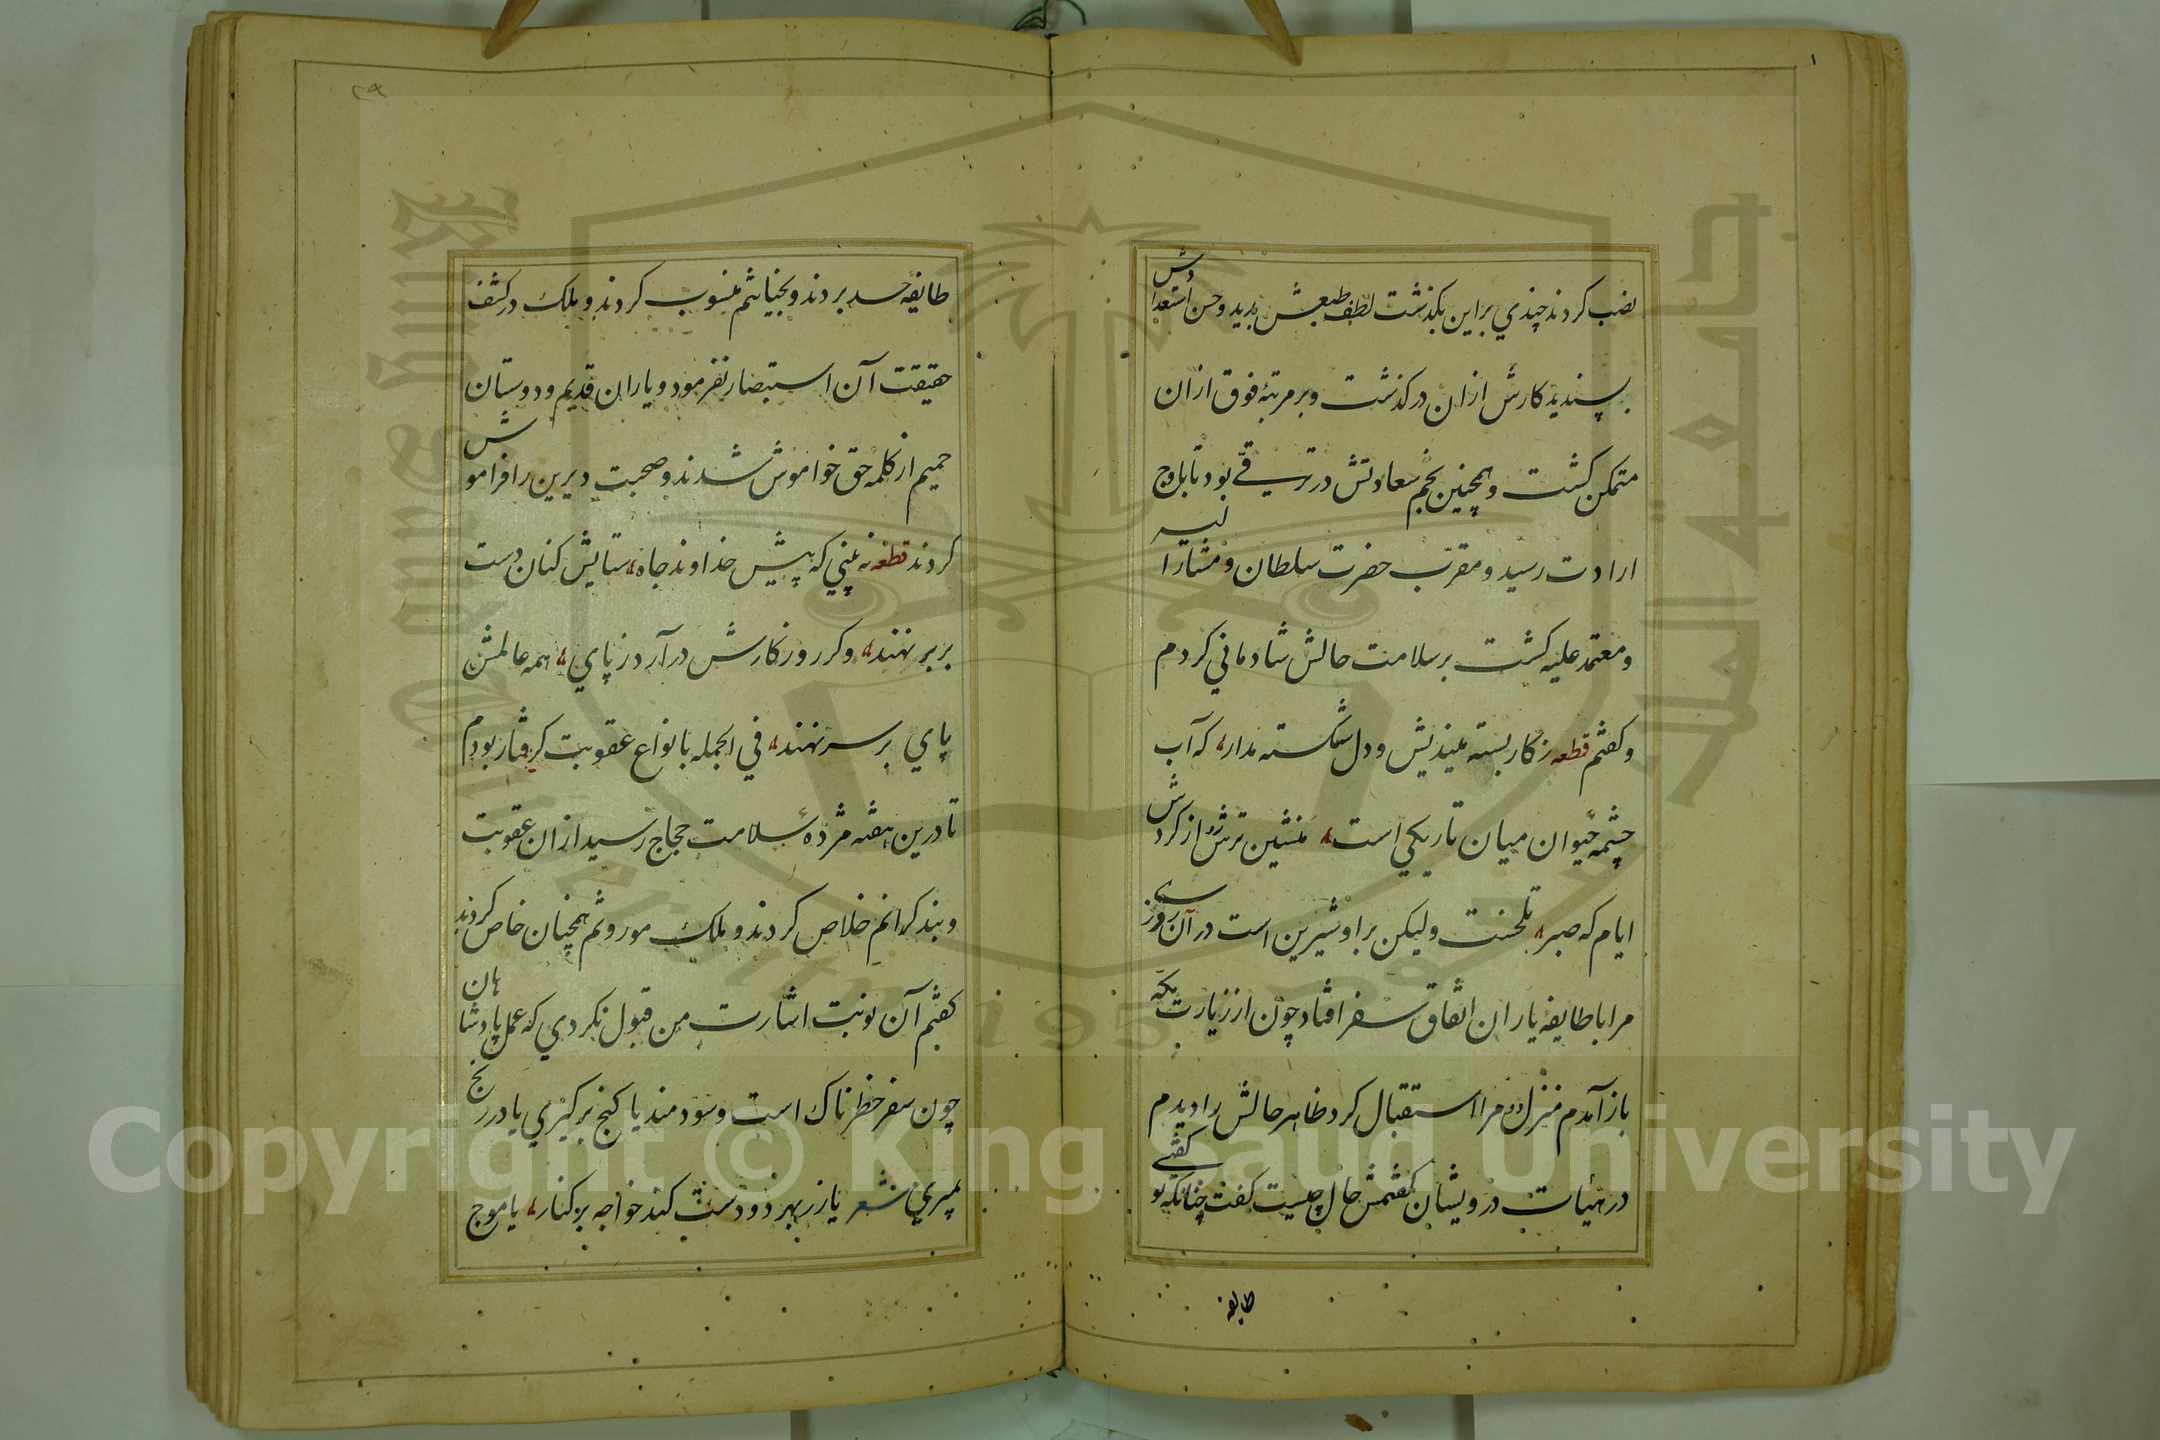 نصب کردند چندی براین بکذشت لطف طبعش بدید وحسن استعدادش
بپسندید کارش ازان درکذشت وبر مرتبهٔ فوق ازان
متمکن کشت وهمچنین نجم سعادتش در ترقی بود تا باوج
ارادت رسید ومقرب حضرت سلطان ومشارا لیه
ومعتمد علیه کشت بر سلامت حالش شادمانی کردم
وکفتم قطعه ز کار بسته میندیش ودل شکسته مدار که آب
چشمه حیوان میان تاریکی است منشین ترش از کردش
ایام که صبر تلخست ولیکن بر او شیرین است در آن روزی
مرا با طایفه یاران اتفاق سفر افتاد چون از زیارت مکه
باز آمدم منزل دو مرا استقبال کرد ظاهر حالش را دیدم
در هیئات درویشان کفتمش حال چیست کفت چنانکه تو کفتی
طایفه
۲۹
طایفه حسد بردند وبخیانتم منسوب کردند وملک در کشف
حقیقت آن استبصار نفرمود ویاران قدیم ودوستان
حمیم از کلمه حق خواموش شدند وصحبت دیرین را فراموش
کردند قطعه نه بینی که پیش خداوند جاه ستایش کنان دست
بر بر نهند وکر روزکارش در آرد ز پای همه عالمش
پای بر سر نهند فی الجمله بانواع عقوبت کرفتار بودم
تا درین هفته مژدهٔ سلامت حجاج رسید از ان عقوبت
وبند کرانم خلاص کردند وملک موروثم همچنان خاص کردند
کفتم آن نوبت اشارت من قبول نکردی که عمل پادشاهان
چون سفر خطرناک است وسودمند یا کنج برکیری یا در رنج
بمیری شعر یا زر بهر دو دست کند خواجه بر کنار یا موج
Copyright © King Saud University